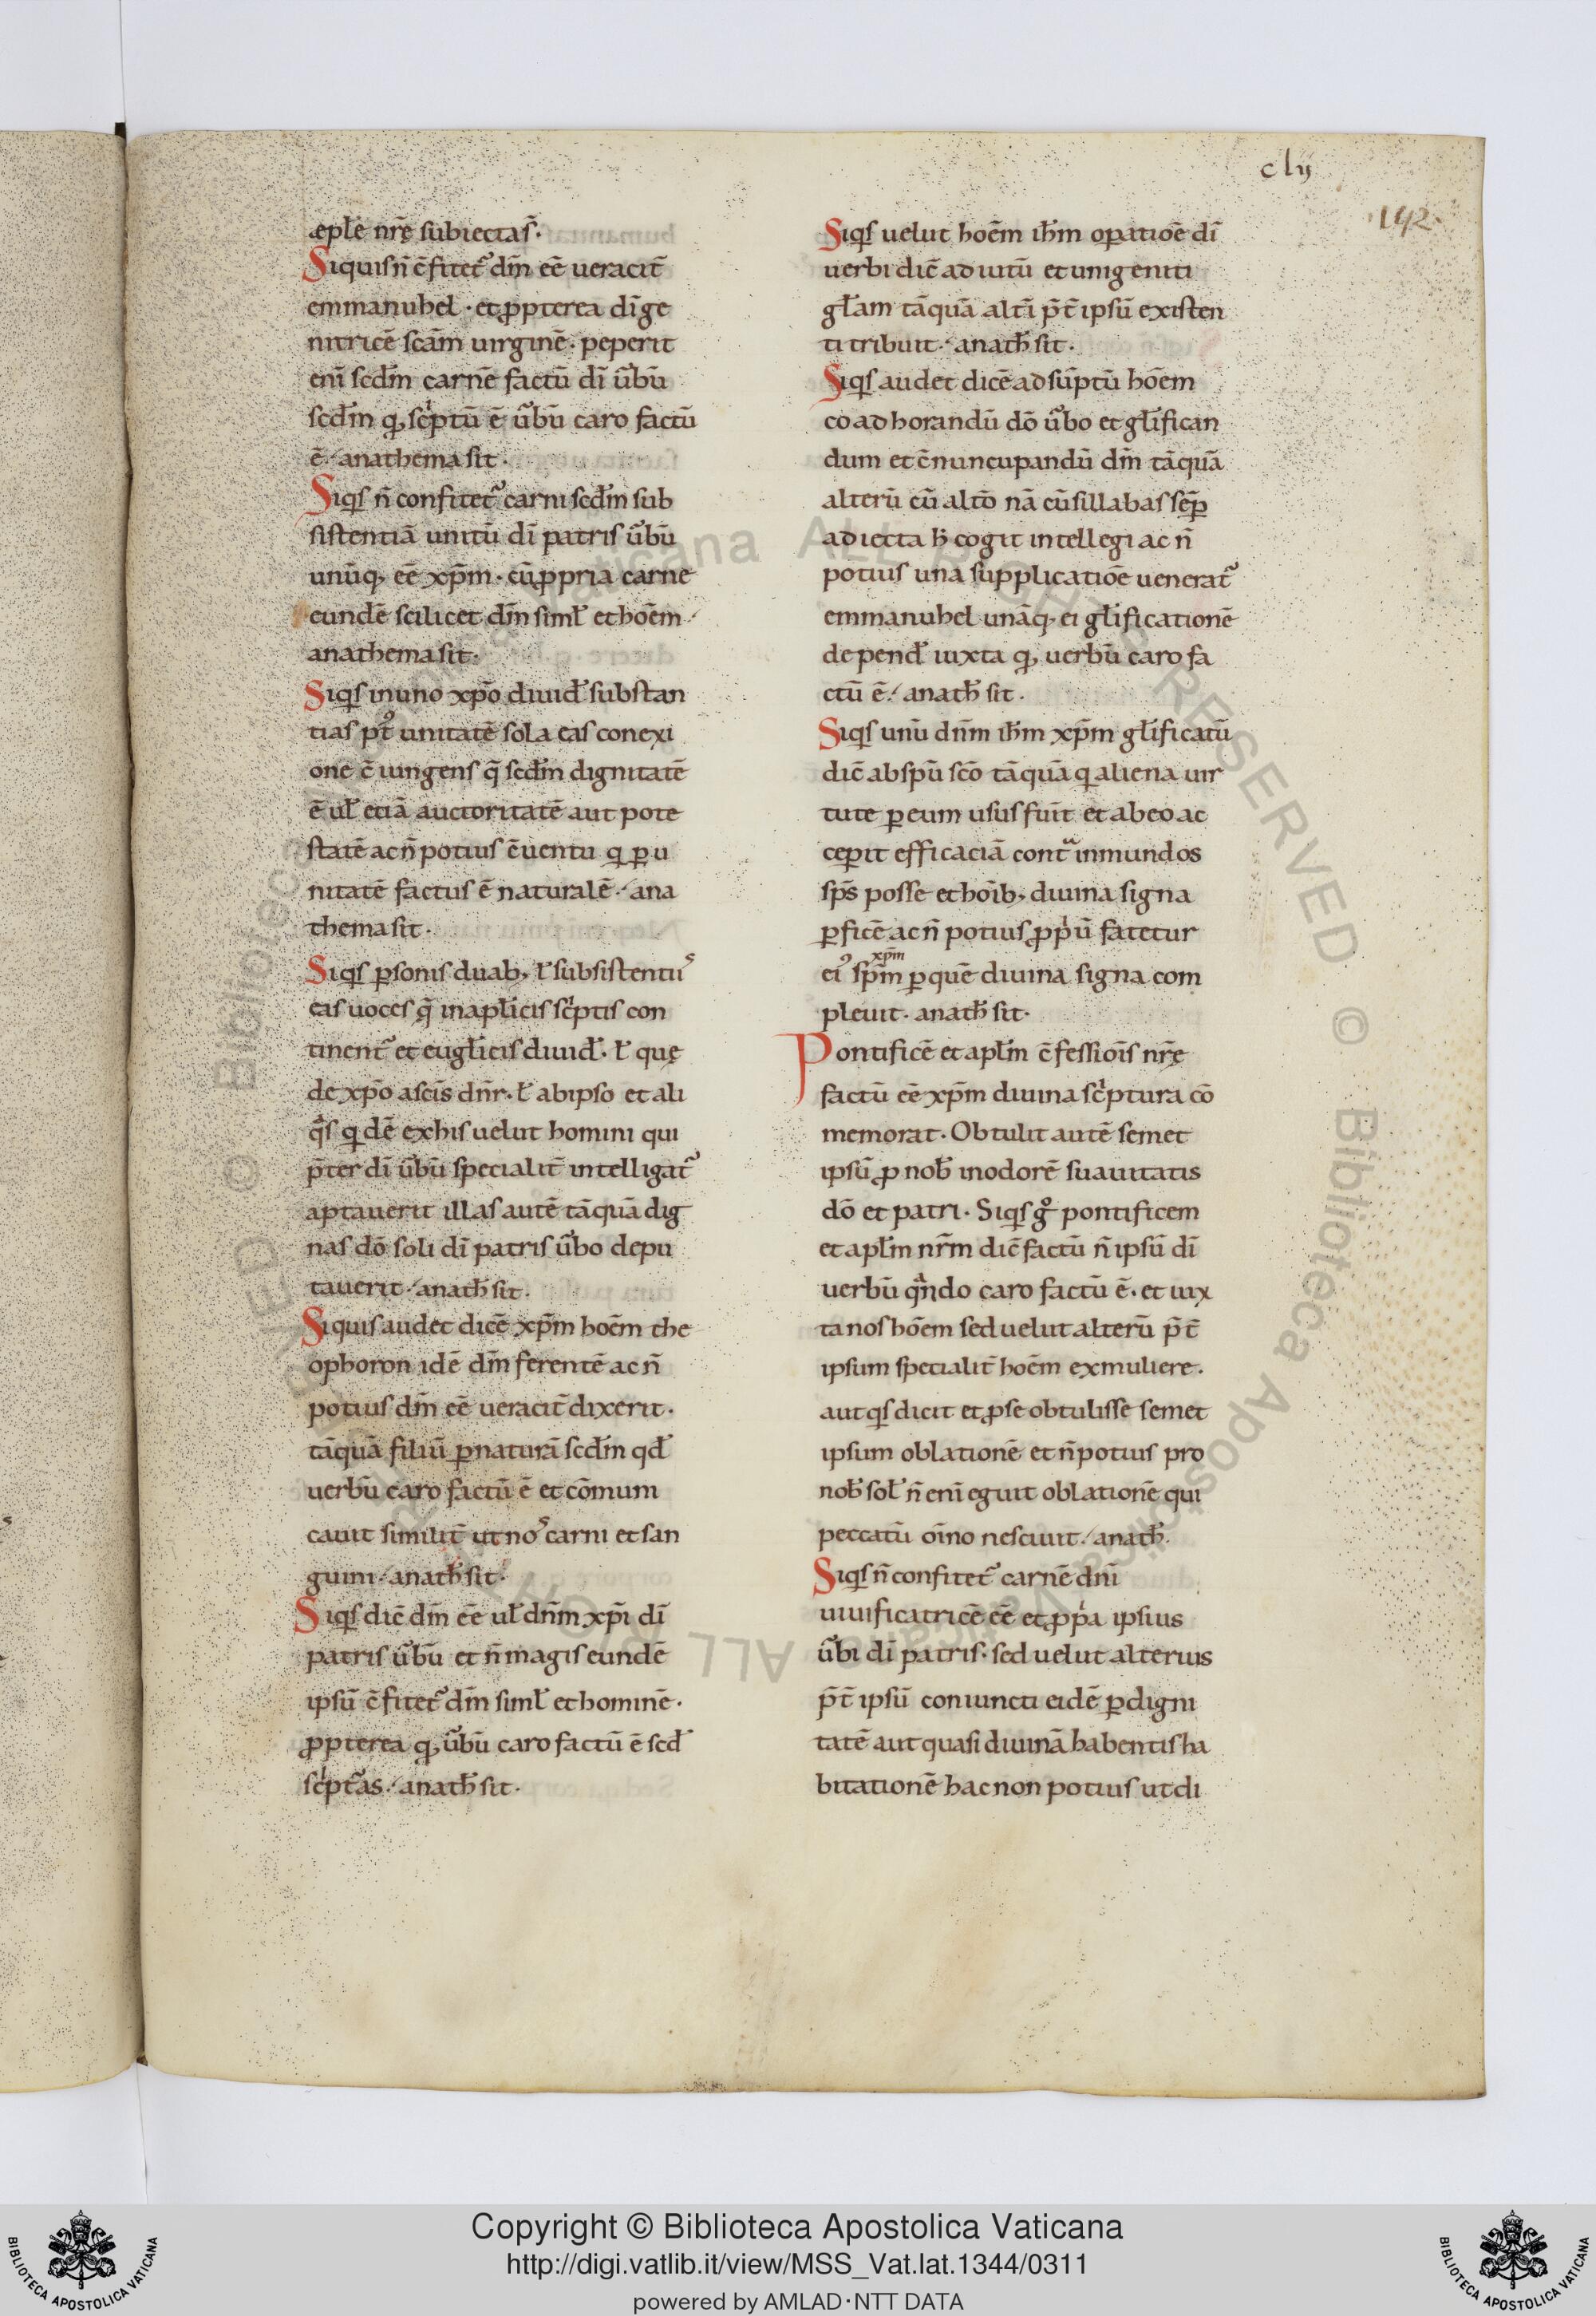 clij
142
æple nrę̄ subiectas̄.
Siquis n̄ c̄fitet᷑ dm̄ eē ueracit̄
emmanuhel · et ꝓpterea dī ge
nitricē scām uirginē · peperit
enī scdm̄ carnē factū dī u᷑bū
scdm̄ q; scͥptū ē u᷑bū caro factū
ē ·/ anathema sit ·
Siqͥs n̄ confitet᷑ carni scdm̄ sub
sistentiā unitū dī patris u᷑bū
unūq; eē xp̄m · cū ꝓpria carne
eundē scilicet dm̄ siml̄ et hoēm ·/
anathema sit ·
Siqͥs in uno xp̄o diuid̄ substan
tias pt᷑ unitatē sola eas conexi
one c̄iungens q̄ scdm̄ dignitatē
ē ul̄ etiā auctoritatē aut pote
statē ac n̄ potius c̄uentu q ꝑ u
nitatē factus ē naturalē ·/ ana
thema sit ·
Siqͥs ꝑsonis duab; l̄ subsistentiis
eas uoces q̄ in apl̄icis scͥptis con
tinent᷑ et eugl̄icis diuid̄ · l̄ quę
de xp̄o a scīs dn̄r · l̄ ab ipso et ali
qͣs qͥdē ex his uelut homini qui
p̄ter dī u᷑bū specialit̄ intelligat᷑
aptauerit illas autē tāquā dig
nas dō soli dī patris u᷑bo depu
tauerit ·/ anath̄ sit ·
Siquis audet dicē xp̄m hoēm the
ophoron idē dm̄ ferentē ac n̄
potius dm̄ eē ueracit̄ dixerit ·
tāquā filiū ꝑ naturā scdm̄ qd̄
uerbū caro factū ē et cōmuni
cauit similit̄ ut nos carni et san
guini ·/ anath̄ sit ·
Siqͥs dic̄ dm̄ eē ul̄ dn̄m xp̄i dī
patris u᷑bū et n̄ magis eundē
ipsū c̄fitet᷑ dm̄ siml̄ et hominē ·
ꝓpterea q; u᷑bū caro factū ē scd̄
scͥpt᷑as ·/ anath̄ sit ·
Siqͥs uelut hoēm ih̄m oꝑatiōe dī
uerbi dic̄ adiutū et unigeniti
gl̄am tāquā altī p̄t̄ ipsū existen
ti tribuit ·/ anath̄ sit ·
Siqͥs audet dicē adsūptū hoēm
coadhorandū dō u᷑bo et gl̄ifican
dum et c̄nuncupandū dm̄ tāquā
alterū cū altō nā cū sillabas sēꝑ
adiecta h̄ cogit intellegi ac n̄
potius una supplicatiōe uenerat᷑
emmanuhel unāq; ei gl̄ificationē
depend̄ iuxta q; uerbū caro fa
ctū ē ·/ anath̄ sit ·
Siqͥs unū dn̄m ih̄m xp̄m gl̄ificatū
dic̄ ab sp̄ū scō tāquā q aliena uir
tute ꝑ eum usus fuit et ab eo ac
ceꝑit efficaciā contͣ inmundos
sp̄s posse et hoīb; diuina signa
ꝑficē ac n̄ potius ꝓpͥū fatetur
xp̄m
ei᷒ sp̄m ꝑ quē diuina signa com
pleuit · anath̄ sit ·
Pontificē et apl̄m c̄fessiōis nrę̄
factū eē xp̄m diuina scͥptura cō
memorat · Obtulit autē semet
ipsū ꝓ nob̄ in odorē suauitatis
dō et patri · Siqͥs gͦ pontificem
et apl̄m nr̄m dic̄ factū n̄ ipsū dī
uerbū qͣndo caro factū ē · et iux
ta nos hoēm sed uelut alterū p̄t̄
ipsum specialit̄ hoēm ex muliere ·
aut qͥs dicit et ꝓ se obtulisse semet
ipsum oblationē et n̄ potius pro
nob̄ sol̄ n̄ enī eguit oblationē qui
peccatū oīno nesciuit ·/ anath̄ ·
Siqͥs n̄ confitet᷑ carnē dn̄i
uiuificatricē eē et ꝓpͥa ipsius
u᷑bi dī patris · sed uelut alterius
p̄t̄ ipsū coniuncti eidē ꝑ digni
tatē aut quasi diuinā habentis ha
bitationē hac non potius ut di
Copyright © Biblioteca Apostolica Vaticana
http://digi.vatlib.it/view/MSS_Vat.lat.1344/0311
powered by AMLAD·NTT DATA
BIBLIOTECA APOSTOLICA VATICANA
BIBLIOTECA APOSTOLICA VATICANA
© Biblioteca Apostolica Vaticana ALL RIGHTS RESERVED © Biblioteca Apostolica Vaticana ALL RIGHTS RESERVED